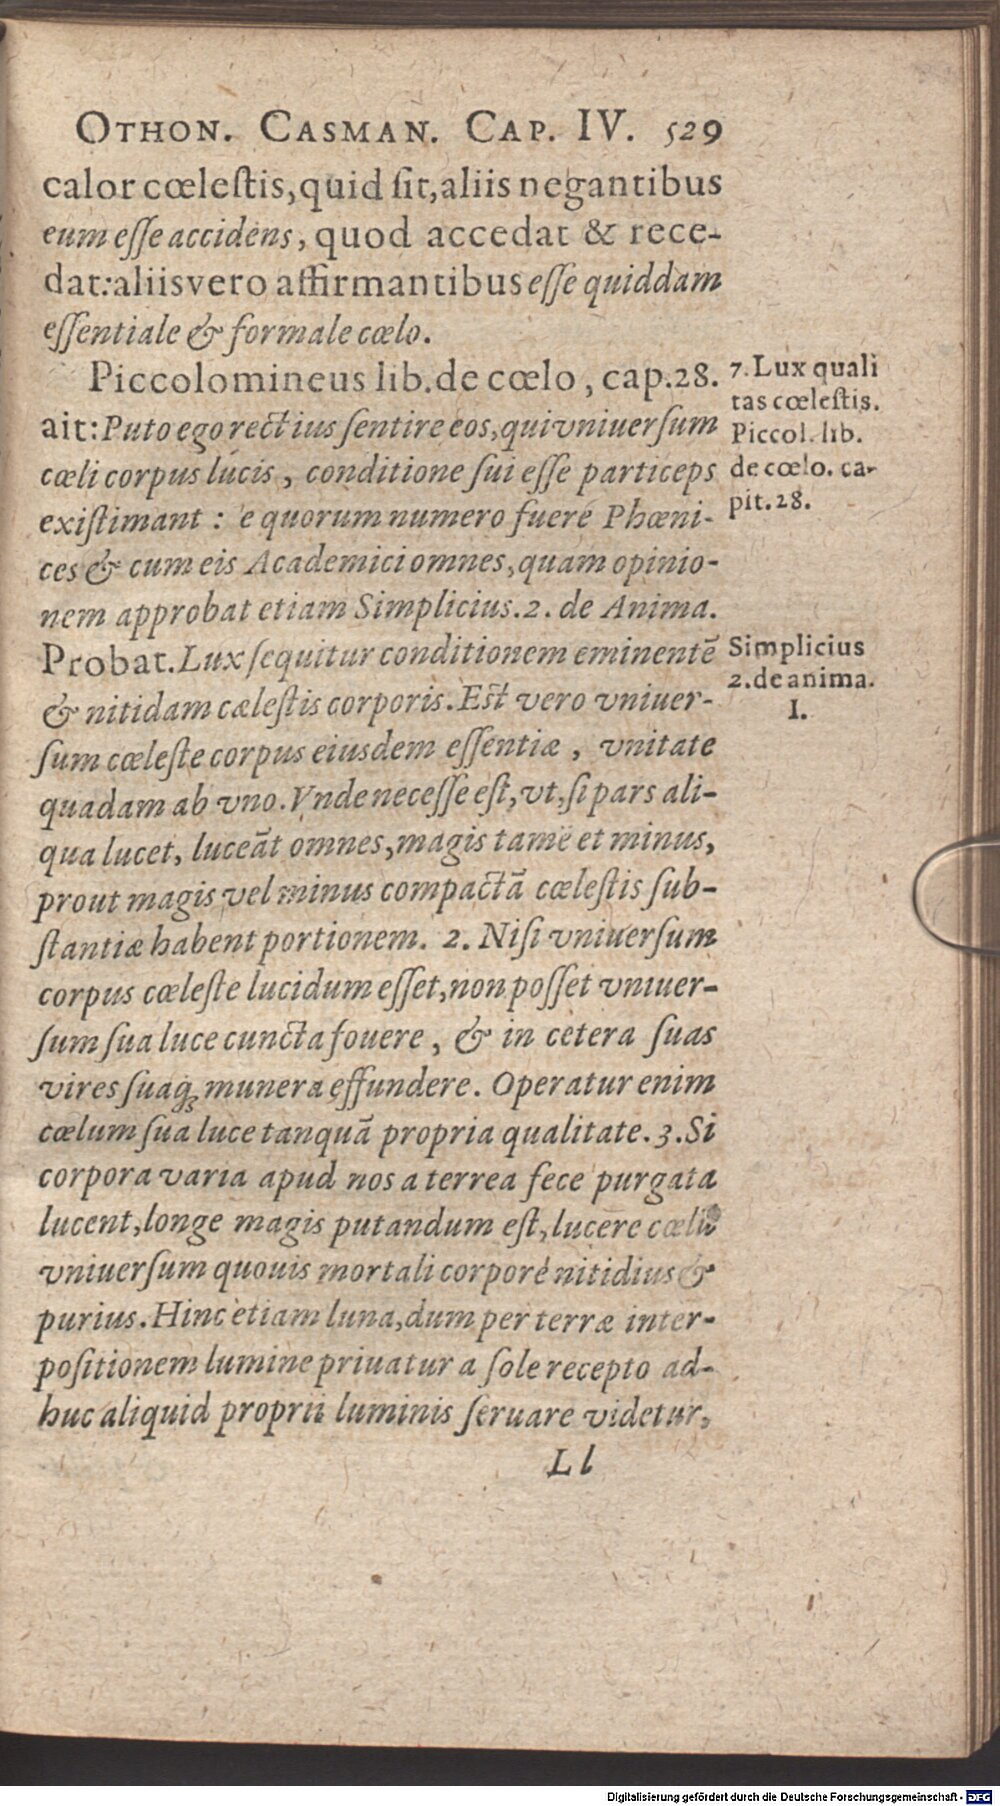 OTHON. CASMAN. CAP. IV. 529
calor cœleſtis, quid ſit, aliis negantibus
eum eſſe accidens, quod accedat & rece-
dat: aliis vero affirmantibus eſſe quiddam
eſſentiale & formale cœlo.
Piccolomineus lib. de cœlo, cap. 28.
ait: Puto ego rectius ſentire eos, qui vniuerſum
cœli corpus lucis, conditione ſui eſſe particeps
exiſtimant : e quorum numero fuere Phœni-
ces & cum eis Academici omnes, quam opinio-
nem approbat etiam Simplicius. 2. de Anima.
Probat. Lux ſequitur conditionem eminentē
& nitidam cæleſtis corporis. Eſt vero vniuer-
ſum cœleſte corpus eiusdem eſſentiæ, vnitate
quadam ab vno. Vnde neceſſe eſt, vt, ſi pars ali-
qua lucet, luceāt omnes, magis tamē et minus,
prout magis vel minus compactā cœleſtis ſub-
ſtantiæ habent portionem. 2. Niſi vniuerſum
corpus cœleſte lucidum eſſet, non poſſet vniuer-
ſum ſua luce cuncta fouere, & in cetera ſuas
vires ſuaq; munera effundere. Operatur enim
cœlum ſua luce tanquā propria qualitate. 3. Si
corpora varia apud nos a terrea fece purgata
lucent, longe magis putandum eſt, lucere cœlū
vniuerſum quouis mortali corpore nitidius &
purius. Hinc etiam luna, dum per terræ inter-
poſitionem lumine priuatur a ſole recepto ad-
huc aliquid proprii luminis ſeruare videtur,
Ll
7. Lux quali
tas cœleſtis.
Piccol. lib.
de cœlo. ca-
pit. 28.
Simplicius
2. de anima.
I.
Digitalisierung gefördert durch die Deutsche Forschungsgemeinschaft - DFG